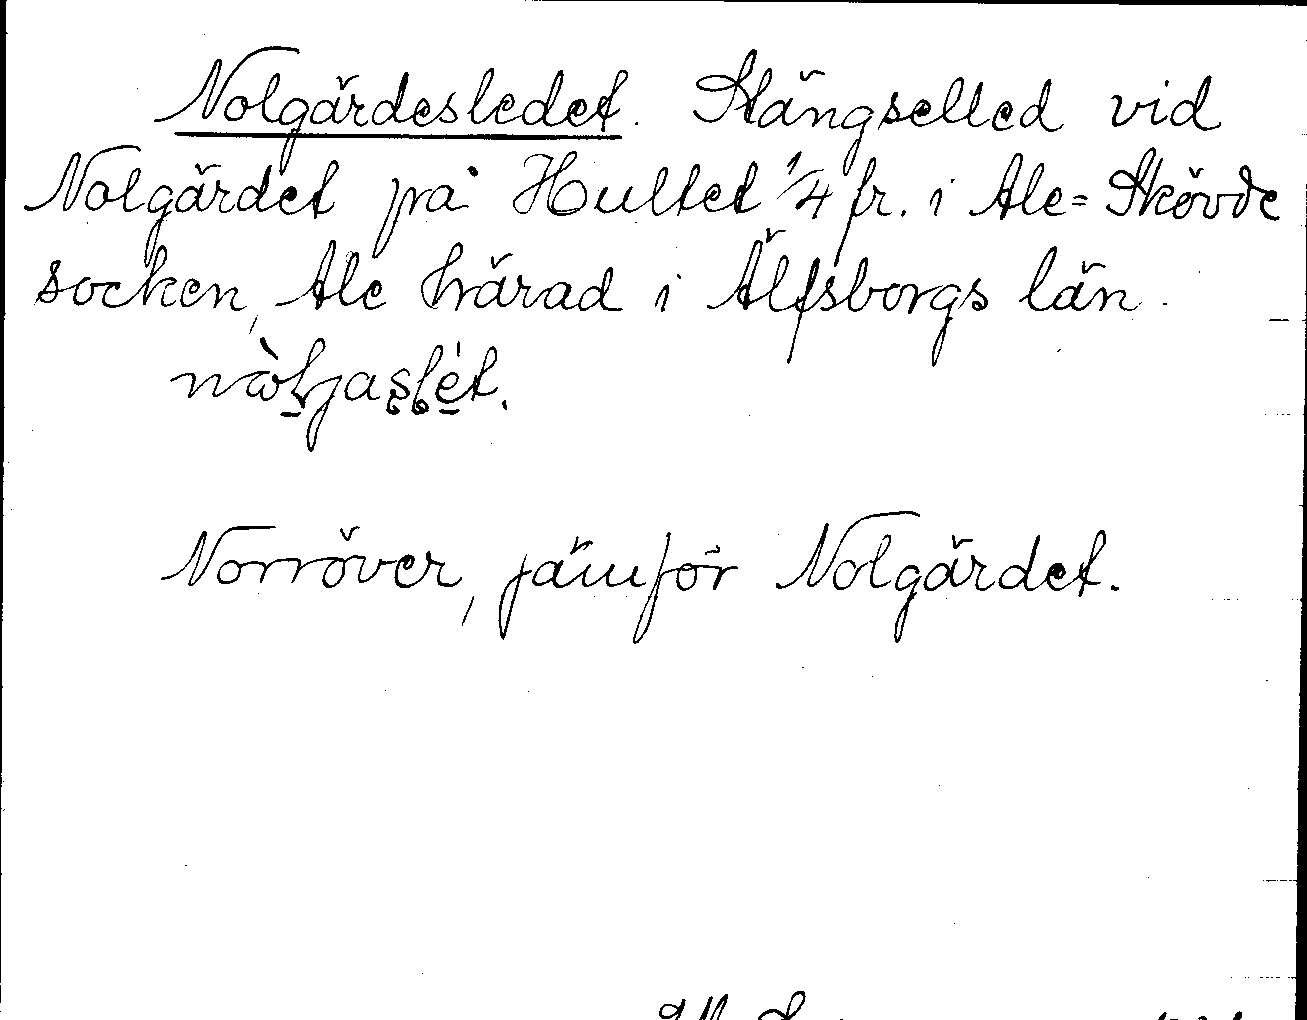 Nolgärdesledet. Stängselled vid
Nolgärdet på Hultet 1/4 fr. i Ale=Skövde
socken, Ale härad i Älfsborgs län.
Norröver, jämför Nolgärdet.